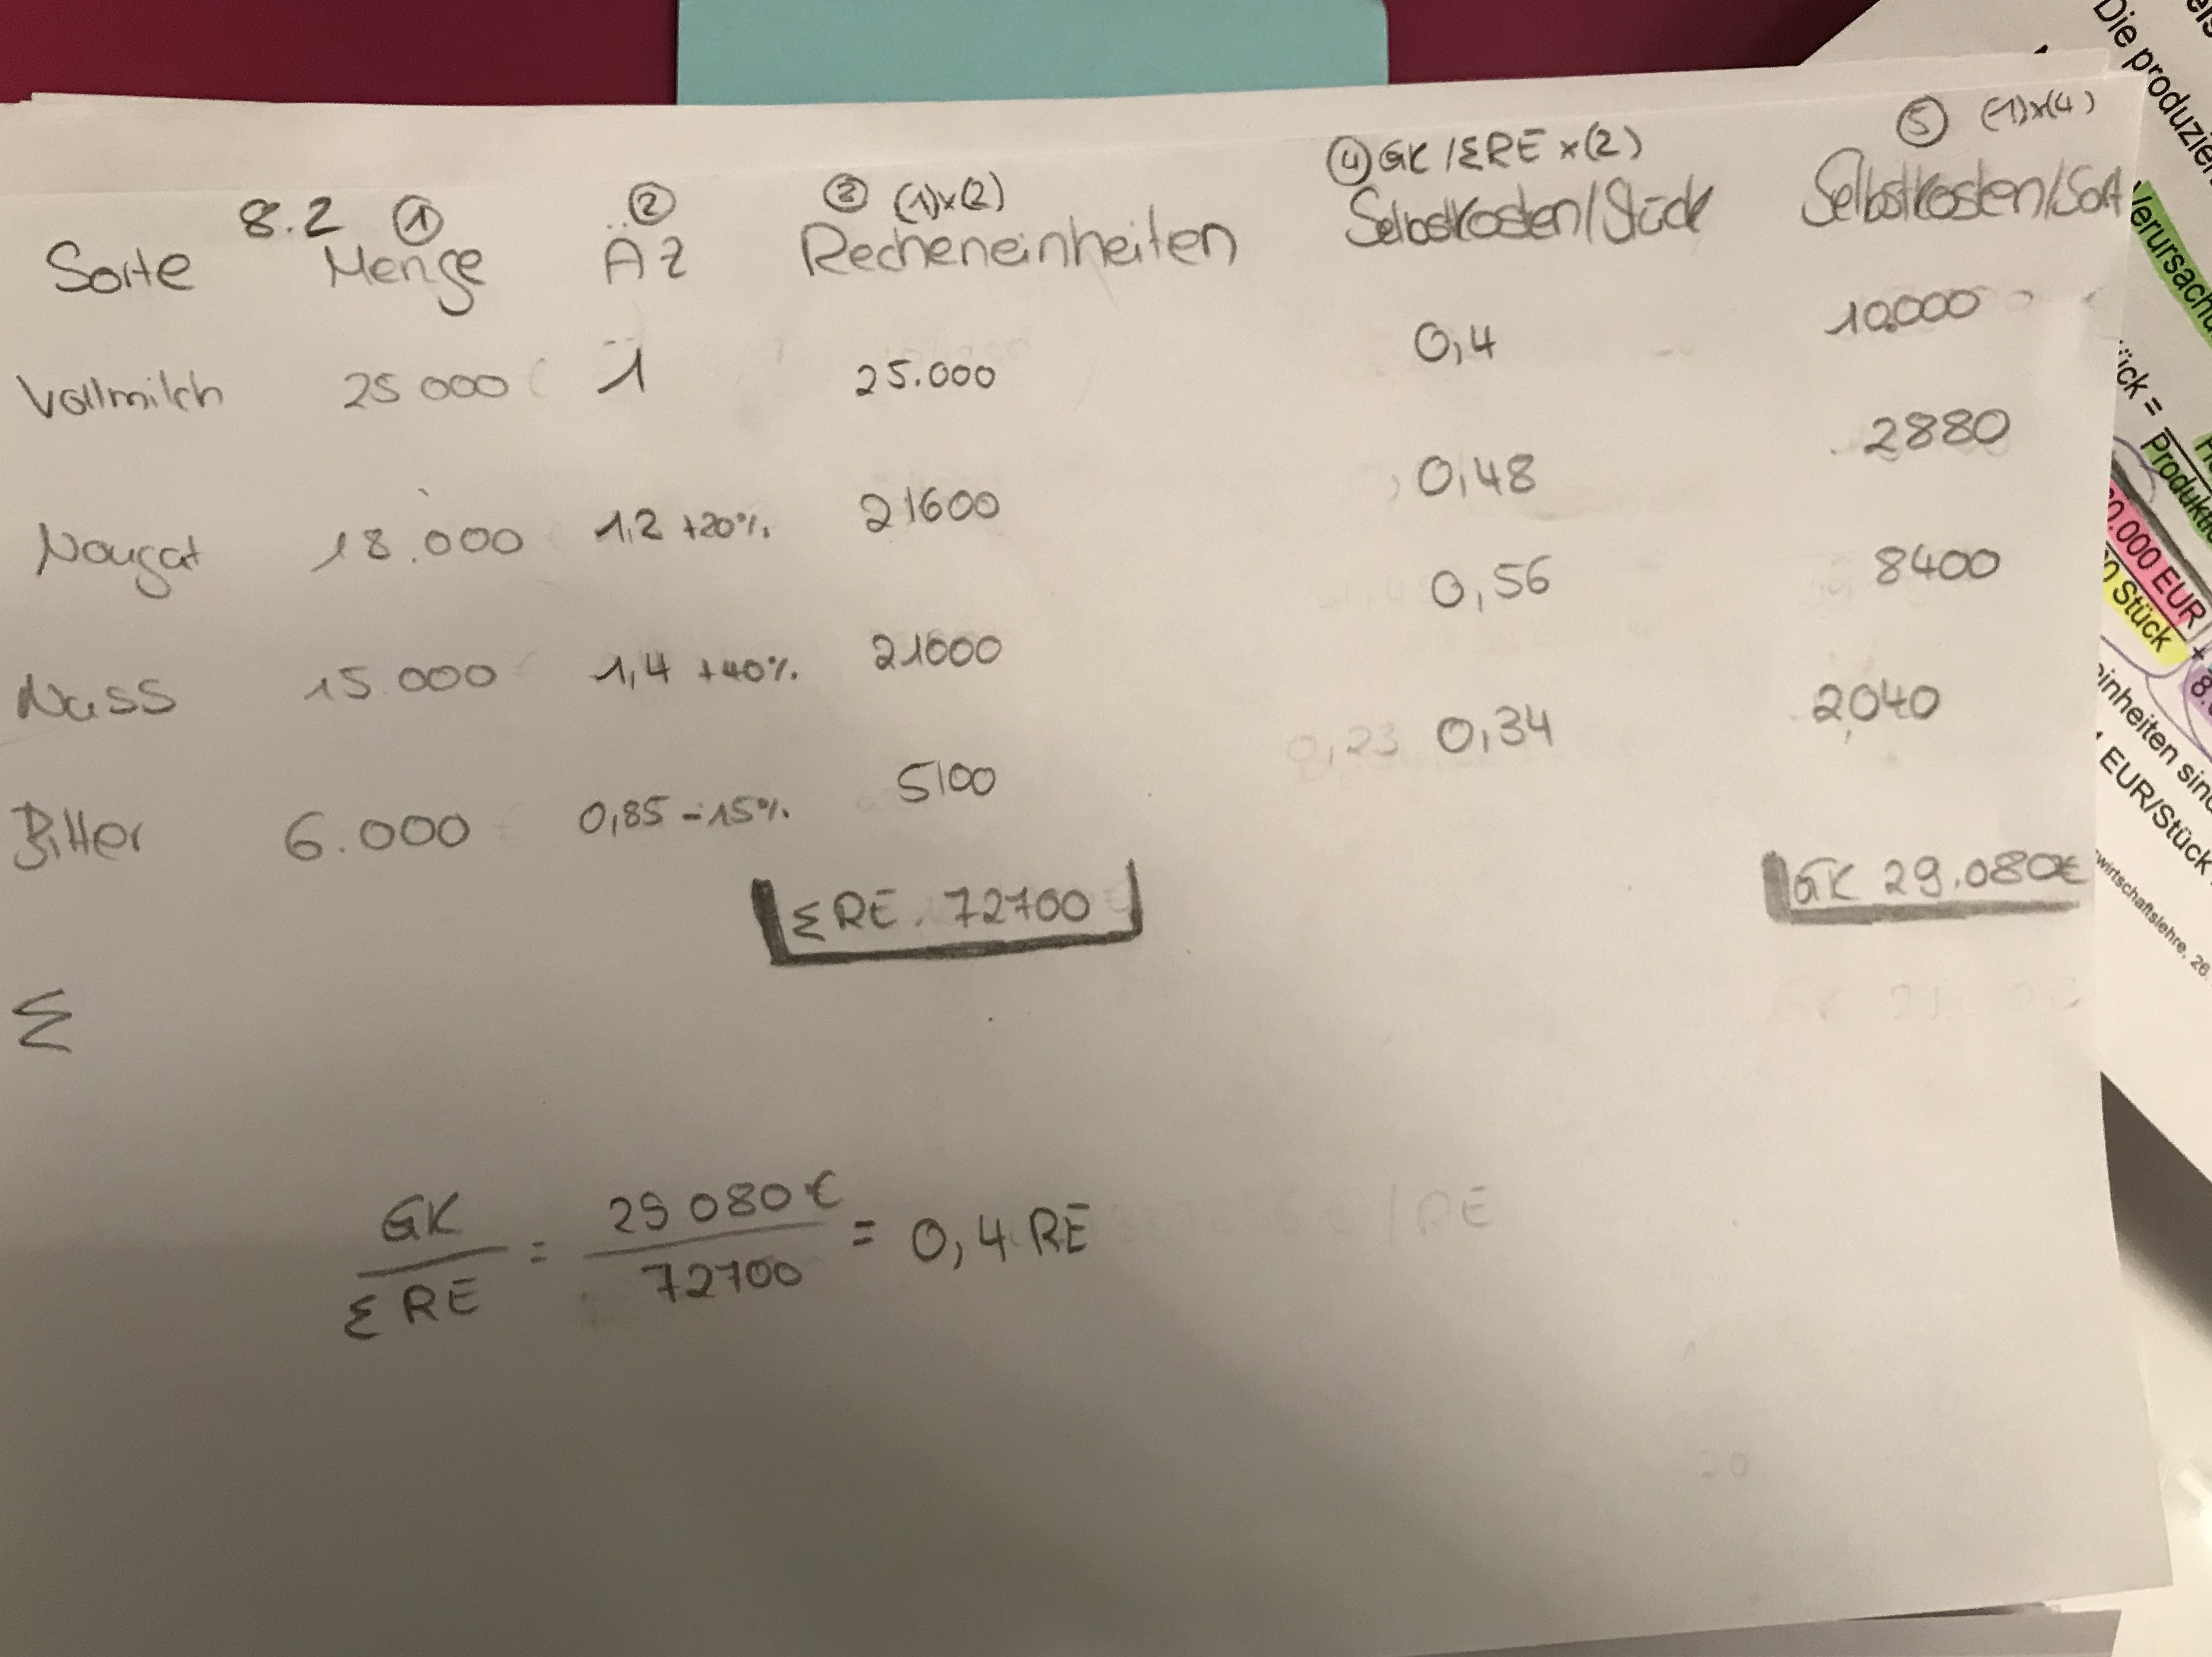 8.2 ① ② ③ (1)x(2) ④ GK/ΣRE x(2) ⑤ (1)x(4)
Sorte Menge ÄZ Recheneinheiten Selbstkosten/Stück Selbstkosten/Sort
Vollmilch 25 000 1 25.000 0,4 10.000
Nougat 18.000 1,2 +20% 21600 0,48 2880
Nuss 15 000 1,4 +40% 21000 0,56 8400
Bitter 6.000 0,85 -15% 5100 0,34 2040
ΣRE. 72700 GK 29.080€
Σ
GK / ΣRE = 29 080€ / 72700 = 0,4 RE
Die produzier
erursach
ück =
Produkt
0.000 EUR
0 Stück
einheiten sind
EUR/Stück
wirtschaftslehre, 26.